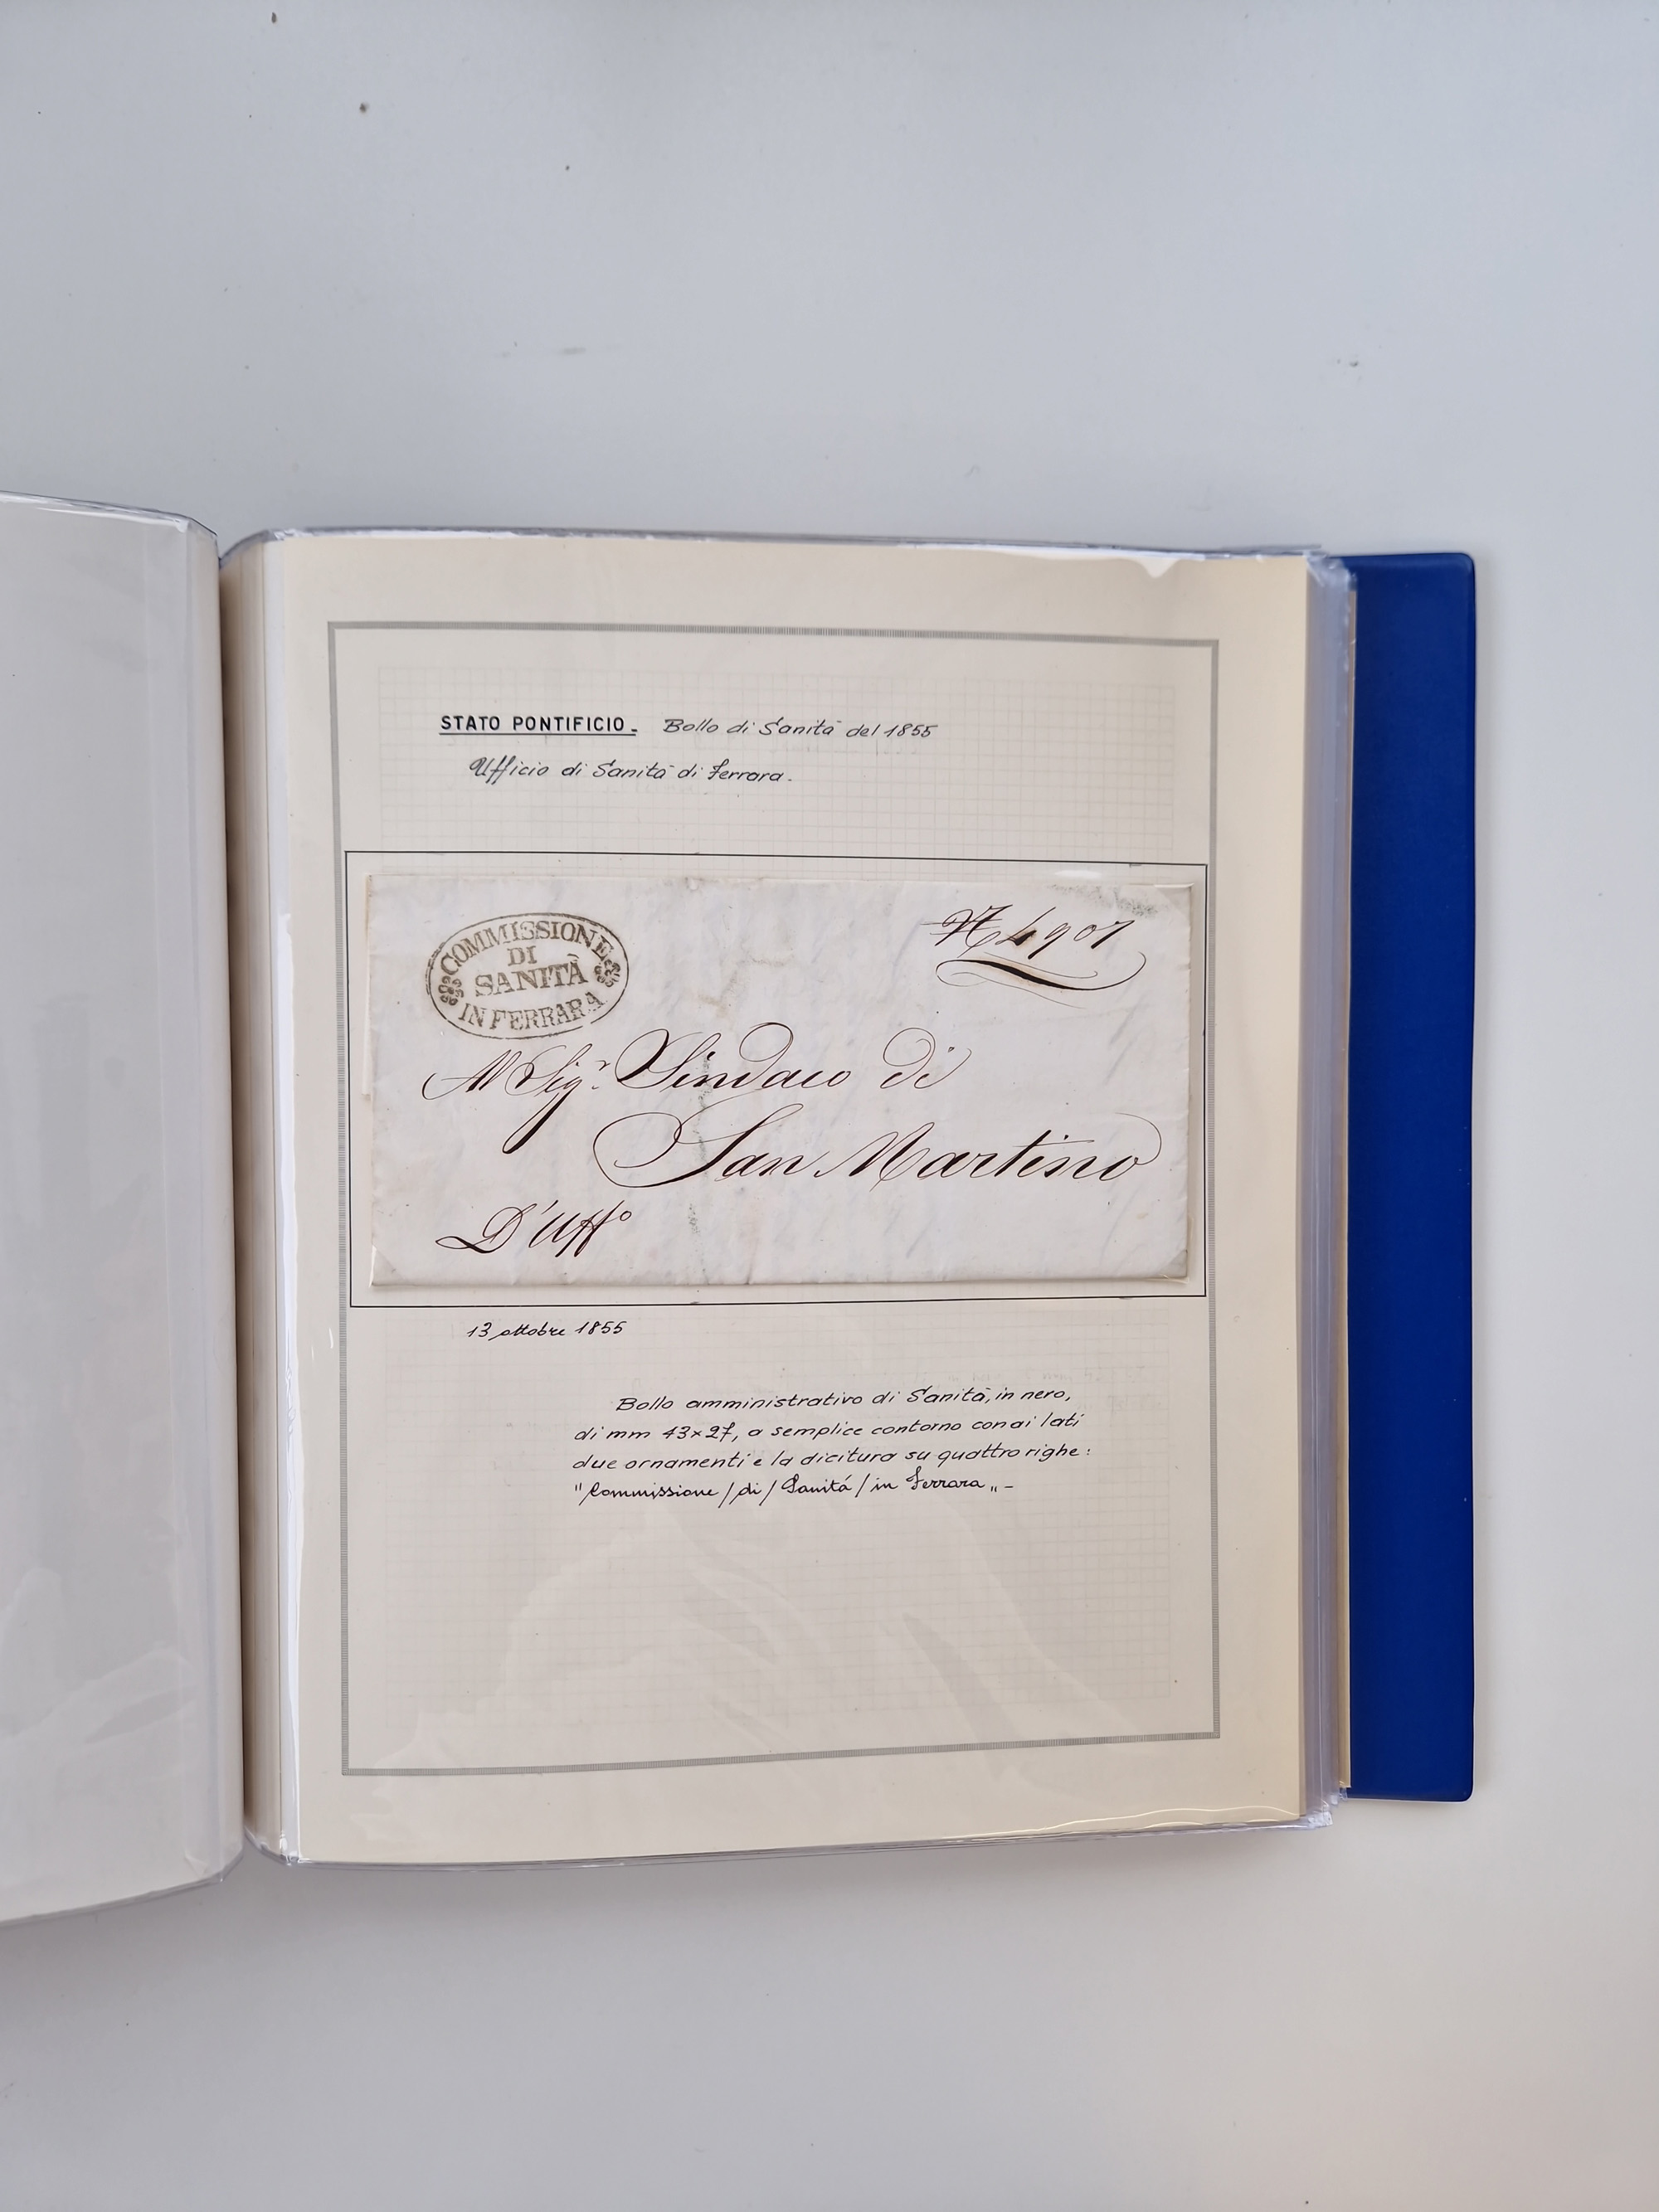 STATO PONTIFICIO - Bollo di Sanità del 1855
Ufficio di Sanità di Ferrara.
COMMISSIONE
DI
SANITÀ
IN FERRARA
N 4907
Al Sigr. Sindaco di
San Martino
D'Uffo
13 ottobre 1855
Bollo amministrativo di Sanità, in nero,
di mm 43x27, a semplice contorno con ai lati
due ornamenti e la dicitura su quattro righe:
"Commissione / di / Sanitá / in Ferrara" -